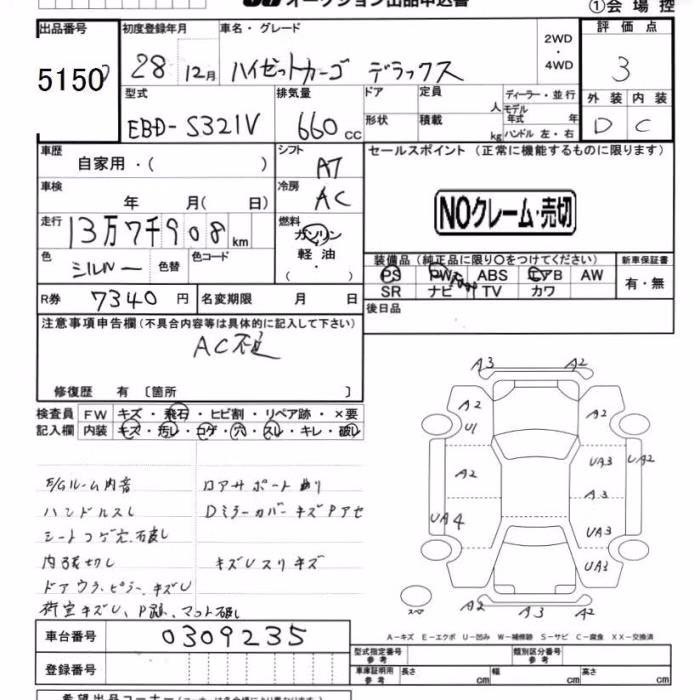 オークション出品申込書 ①会場控
出品番号 初度登録年月 車名・グレード 2WD ・ 4WD 評価点
5150 28 12月 ハイゼットカーゴ デラックス 3
型式 排気量 ドア 定員 人 ディーラー・並行 外装 内装
EBD-S321V 660cc 形状 積載 kg モデル年式 年 ハンドル 左・右 D C
車歴 自家用・( ) シフト AT セールスポイント (正常に機能するものに限ります)
車検 年 月( 日) 冷房 AC
NOクレーム・売切
走行 13万7千908km 燃料 ガソリン 軽油 ( ・ )
色 シルバー 色替 色コード
装備品(純正品に限り○をつけてください) 新車保証書
PS PW ABS エアB AW 有・無
SR ナビ TV カワ
R券 7340円 名変期限 月 日 後日品
注意事項申告欄(不具合内容等は具体的に記入して下さい)
AC不良
修復歴 有 〔箇所 〕
検査員 FW キズ・飛石・ヒビ割・リペア跡・×要
記入欄 内装 キズ・汚レ・コゲ・穴・スレ・キレ・破レ
A3 A2
A2 A2
U1
UA3 UA2
A2
A3
UA4 UA3
UA3
A2 A3 A2
スペア
E/Gルーム内音 ロアサポート曲り
ハンドルスレ Dミラーカバーキズ Pアセ
シートコゲ穴、破れ
内張切レ キズUスリキズ
ドアウラ、ピラーキズU
荷室キズU、マット破レ
A-キズ E-エクボ U-凹み W-補修跡 S-サビ C-腐食 XX-交換済
車台番号 0309235
登録番号
型式指定番号 参考 類別区分番号 参考
車庫証明用 参考 長さ cm 幅 cm 高さ cm
希望出品コーナー